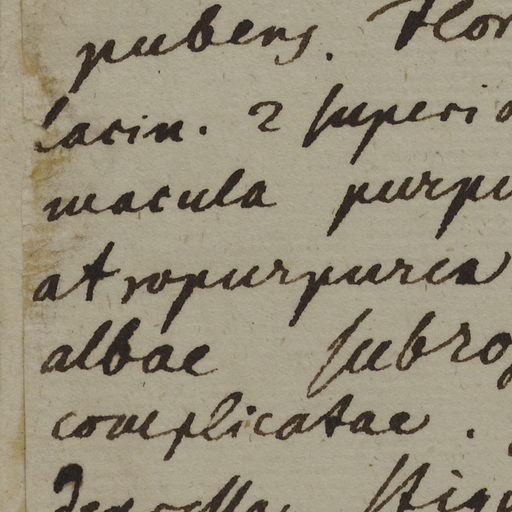 pubens. Flor
Lacin. 2 superio
macula purpu
atropurpurea
albae subro
complicatae.